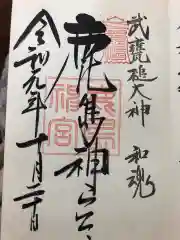 武甕槌大神 和魂
鹿島神宮
令和元年十月二十日